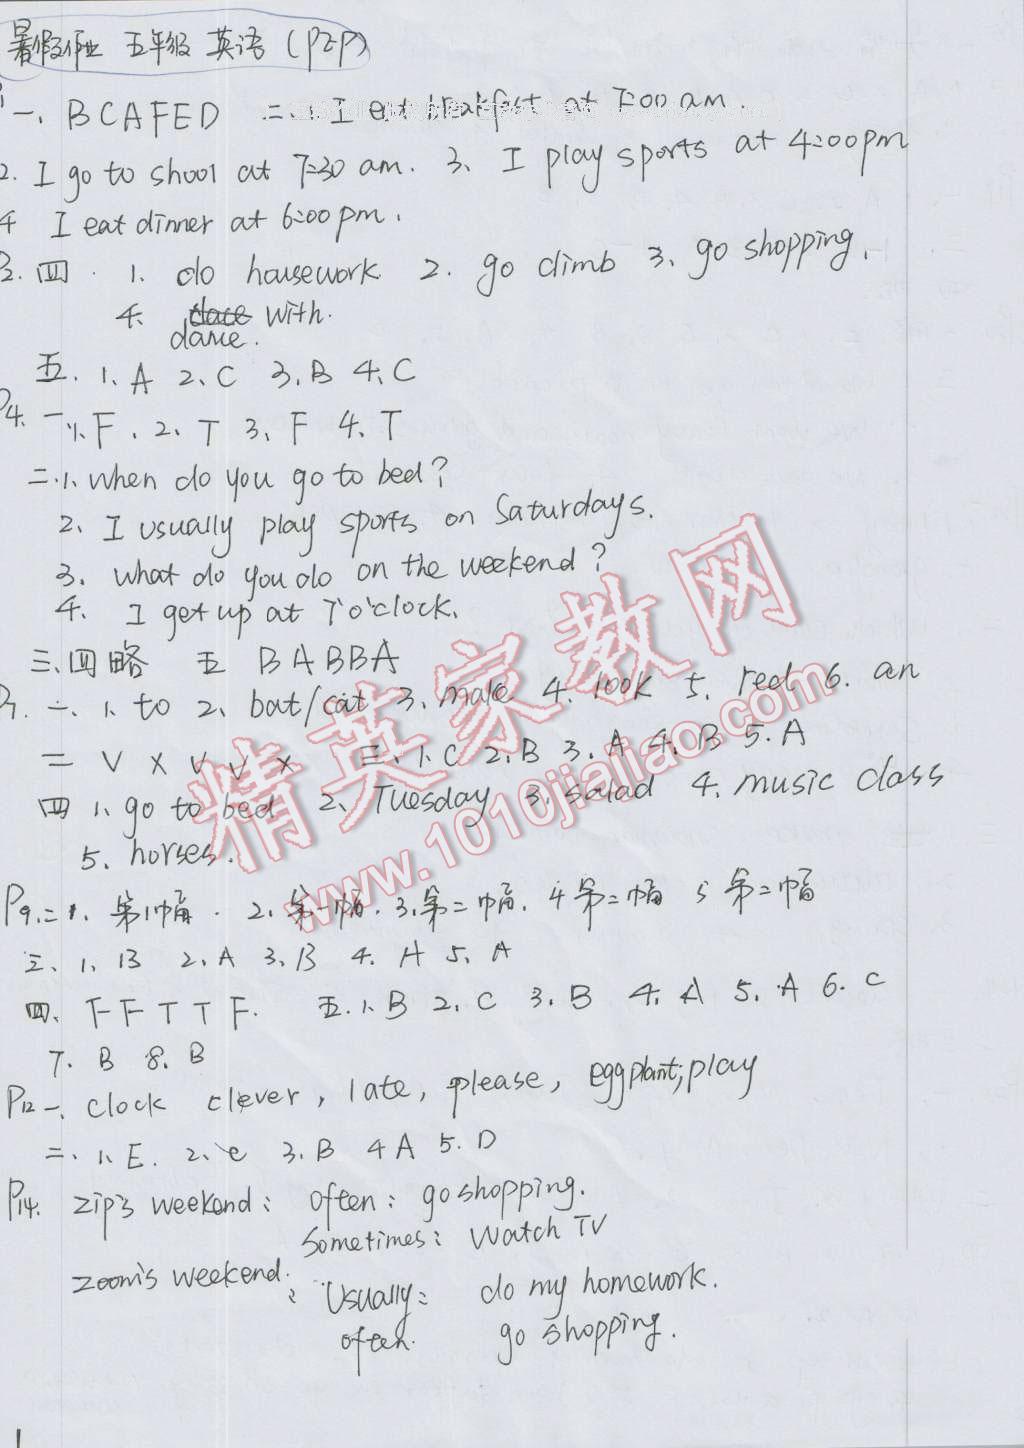 暑假作业 五年级 英语 (PEP)
一、BCAFED 二、1、I eat breakfast at 7:00 am.
2. I go to shool at 7:30 am. 3、I play sports at 4:00pm
4 I eat dinner at 6:00pm.
四. 1. do housework 2. go climb 3、go shopping.
4. with.
dance.
五. 1、A 2、C 3、B 4、C
P4. 一1、F. 2、T 3、F 4、T
二.1、when do you go to bed?
2、I usually play sports on Saturdays.
3. what do you do on the weekend?
4. I get up at 7 o'clock.
三、四略 五 BABBA
一、1、to 2、bat/cat 3、make 4、look 5、red 6. an
二 V X V V X 三、1、C 2、B 3、A 4、B 5.A
四 1、go to bed 2、Tuesday 3、salad 4、music class
5、horses.
P9.二1、第1幅. 2、第一幅. 3、第二幅. 4第二幅 5第二幅
三、1、B 2、A 3、B 4. A 5、A
四、F F T T F. 五.1、B 2、C 3、B 4、A 5、A 6、C
7. B 8、B
P12一、clock clever, late, please, eggplant; play
二、1、E. 2、C 3、B 4A 5、D
P14. Zip's weekend: often: go shopping.
Sometimes: Watch TV
Zoom's weekend: Usually: do my homework.
often. go shopping.
精英家教网
www.1010jiajiao.com
1